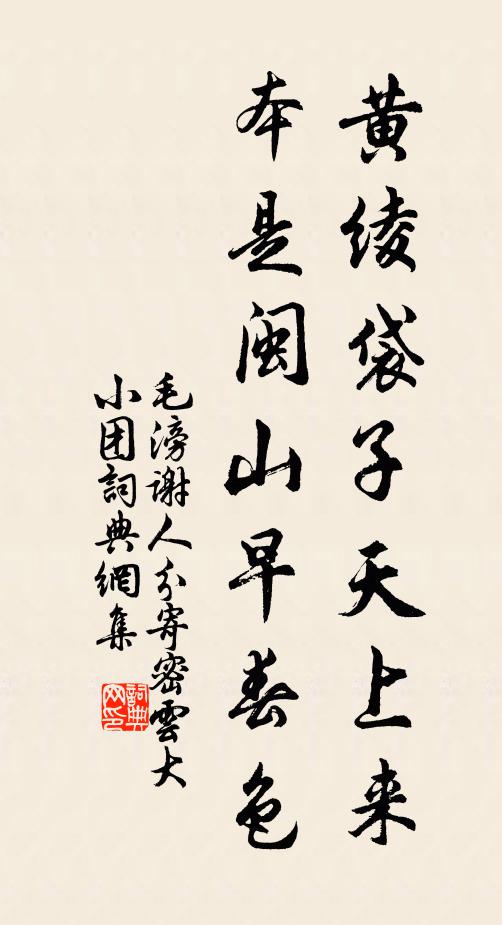 黄绫袋子天上来
本是闽山早春色
毛滂谢人分寄密雲大
小团詞典網集
詞典网印